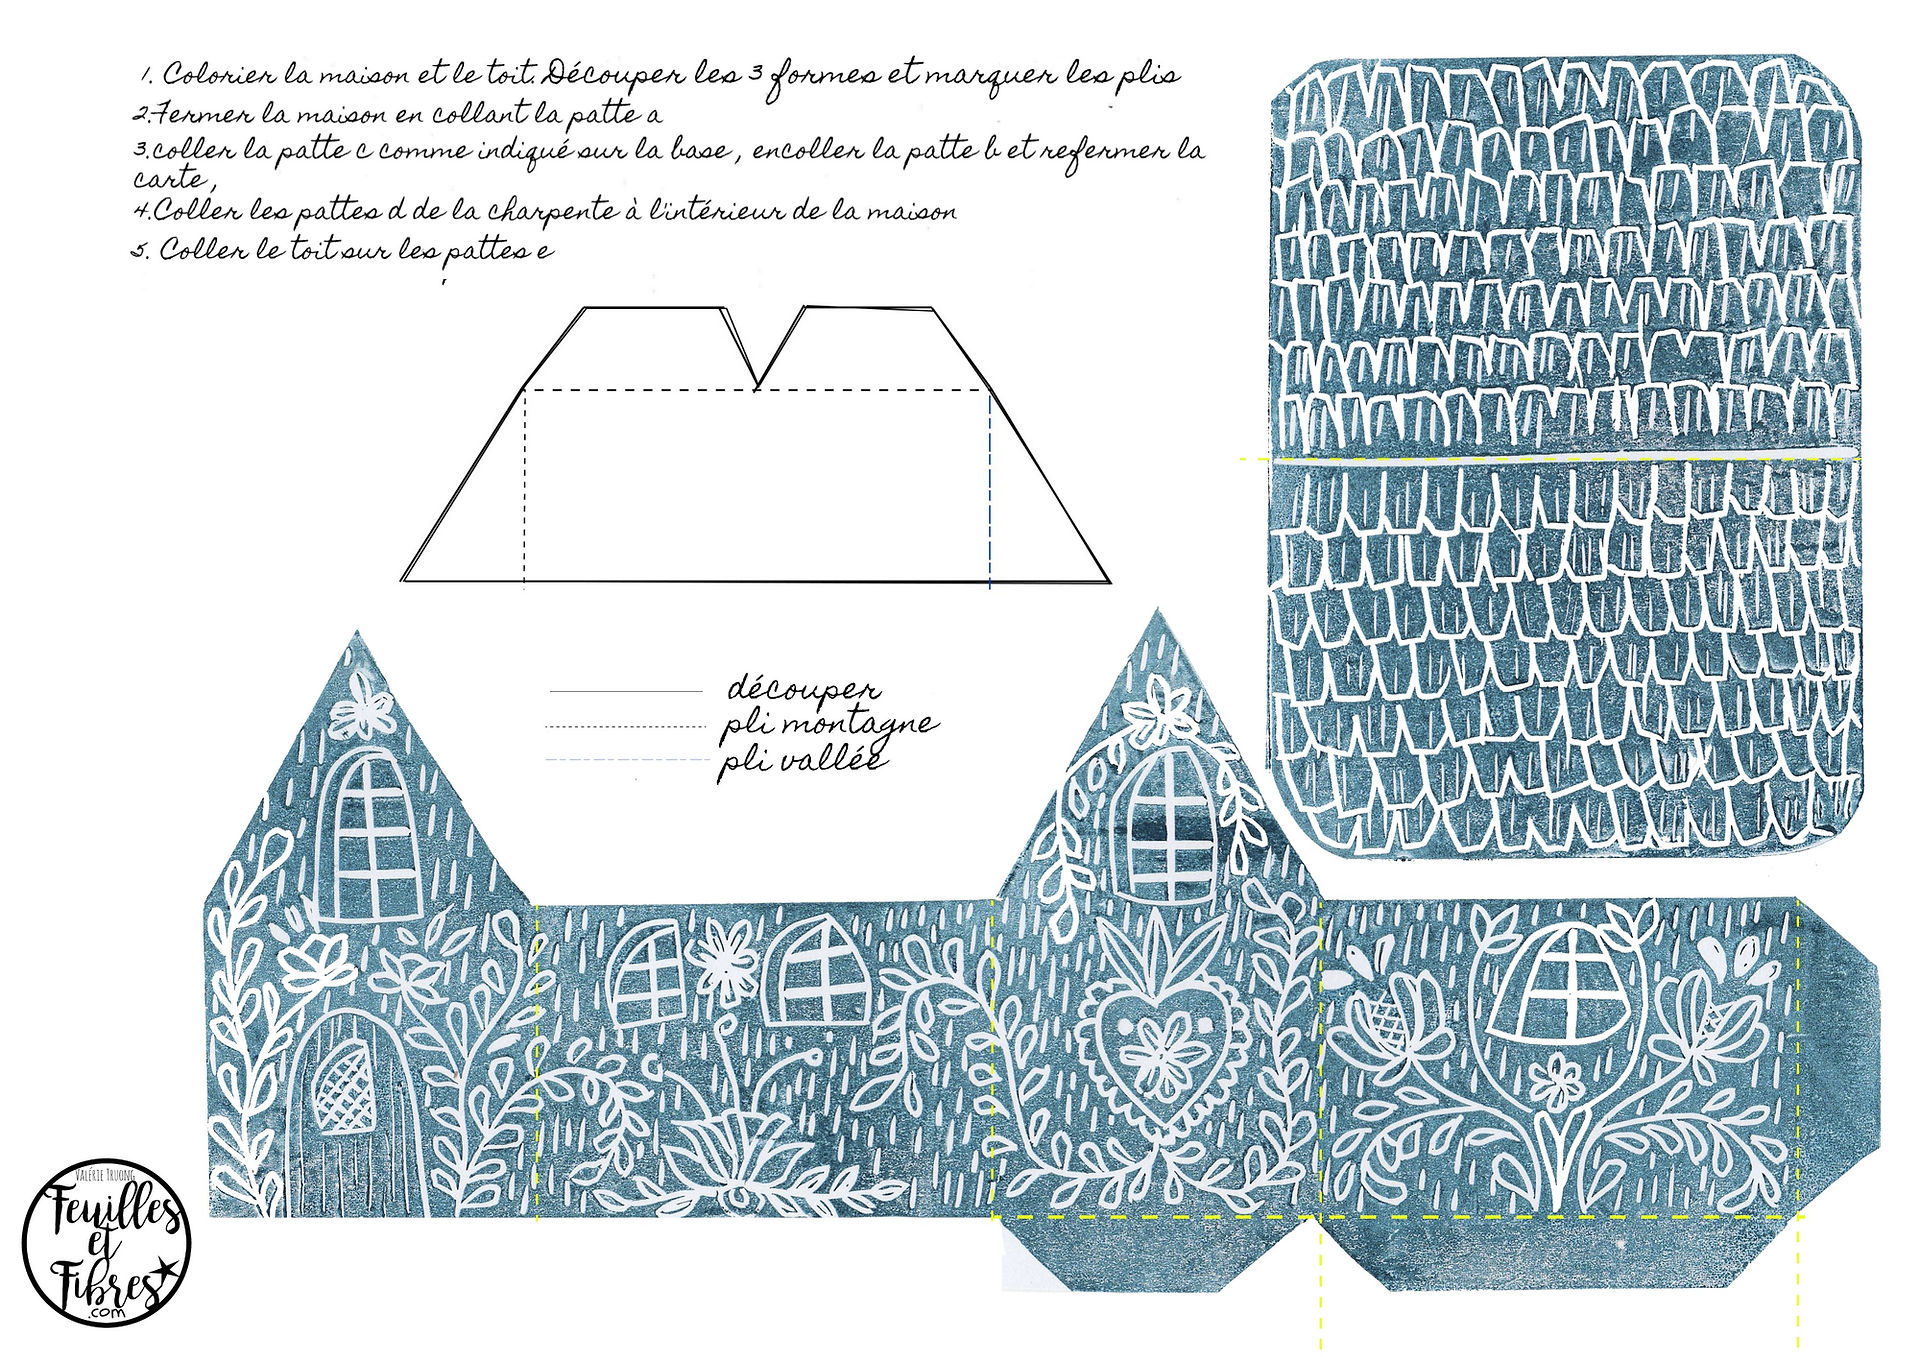 1. Colorier la maison et le toit. Découper les 3 formes et marquer les plis
2.Fermer la maison en collant la patte a
3.coller la patte c comme indiqué sur la base, encoller la patte b et refermer la
carte,
4.Coller les pattes d de la charpente à l'intérieur de la maison
5. Coller le toit sur les pattes e
découper
pli montagne
pli vallée
VALÉRIE TRUONG
Feuilles
et
Fibres
.com